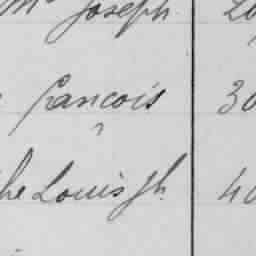 Joseph 20
francois 30
he Louis Jh. 40